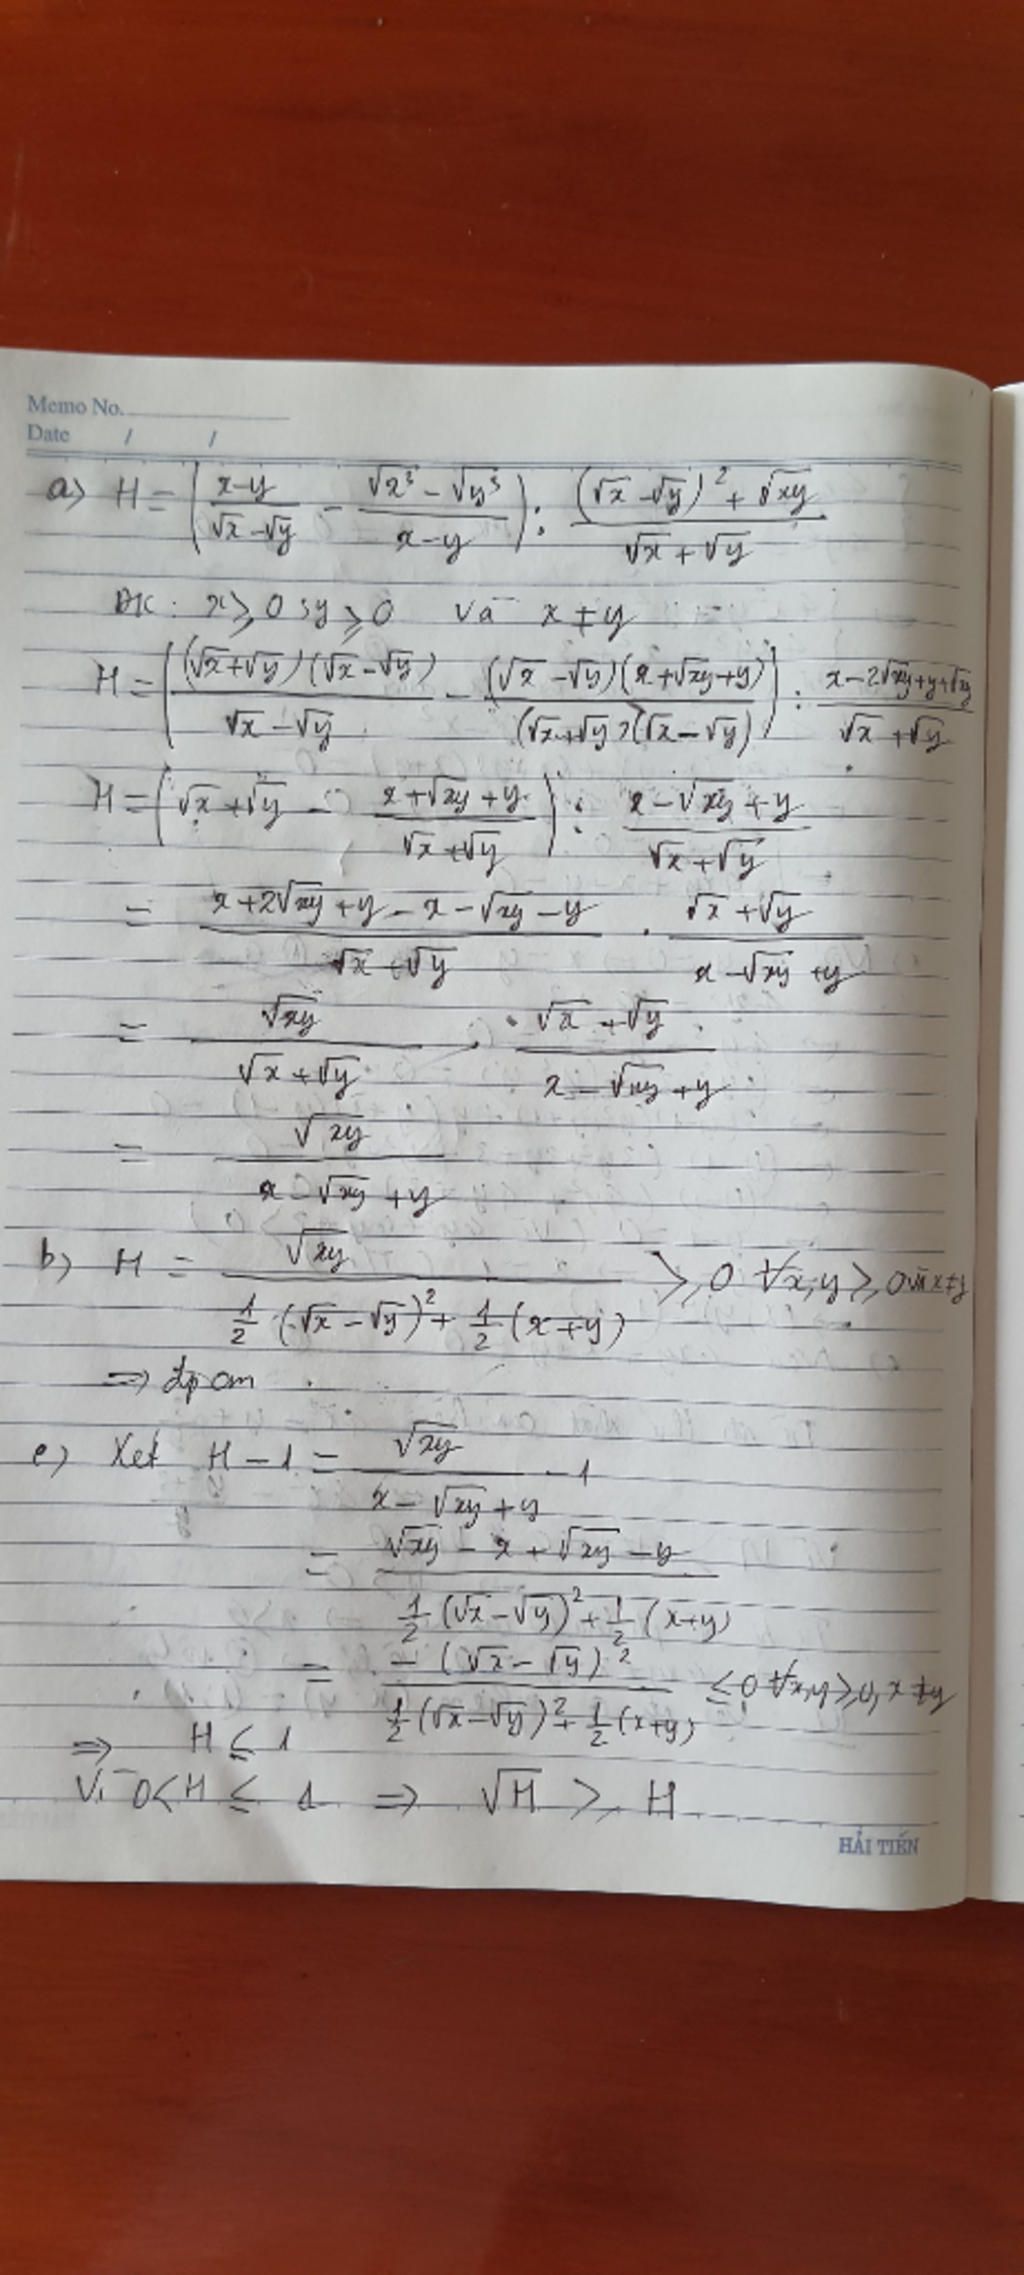 Memo No.
Date / /
a) H = ( (x-y)/(√x-√y) - (√x³-√y³)/(x-y) ) : ((√x-√y)²+√xy)/(√x+√y)
ĐK: x ≥ 0; y ≥ 0 và x ≠ y
H = ( (√x+√y)(√x-√y)/(√x-√y) - (√x-√y)(x+√xy+y)/((√x+√y)(√x-√y)) ) : (x-2√xy+y+√xy)/(√x+√y)
H = ( √x+√y - (x+√xy+y)/(√x+√y) ) : (x-√xy+y)/(√x+√y)
= (x+2√xy+y-x-√xy-y)/(√x+√y) . (√x+√y)/(x-√xy+y)
= √xy/(√x+√y) . (√x+√y)/(x-√xy+y)
= √xy/(x-√xy+y)
b) H = √xy/(1/2(√x-√y)²+1/2(x+y)) ≥ 0 ∀x,y ≥ 0 và x≠y
=> đpcm
c) Xét H - 1 = √xy/(x-√xy+y) - 1
= (√xy-x+√xy-y)/(1/2(√x-√y)²+1/2(x+y))
= -(√x-√y)²/(1/2(√x-√y)²+1/2(x+y)) ≤ 0 ∀x,y ≥ 0, x≠y
=> H ≤ 1
Vì 0 < H ≤ 1 => √H ≥ H
HẢI TIẾN